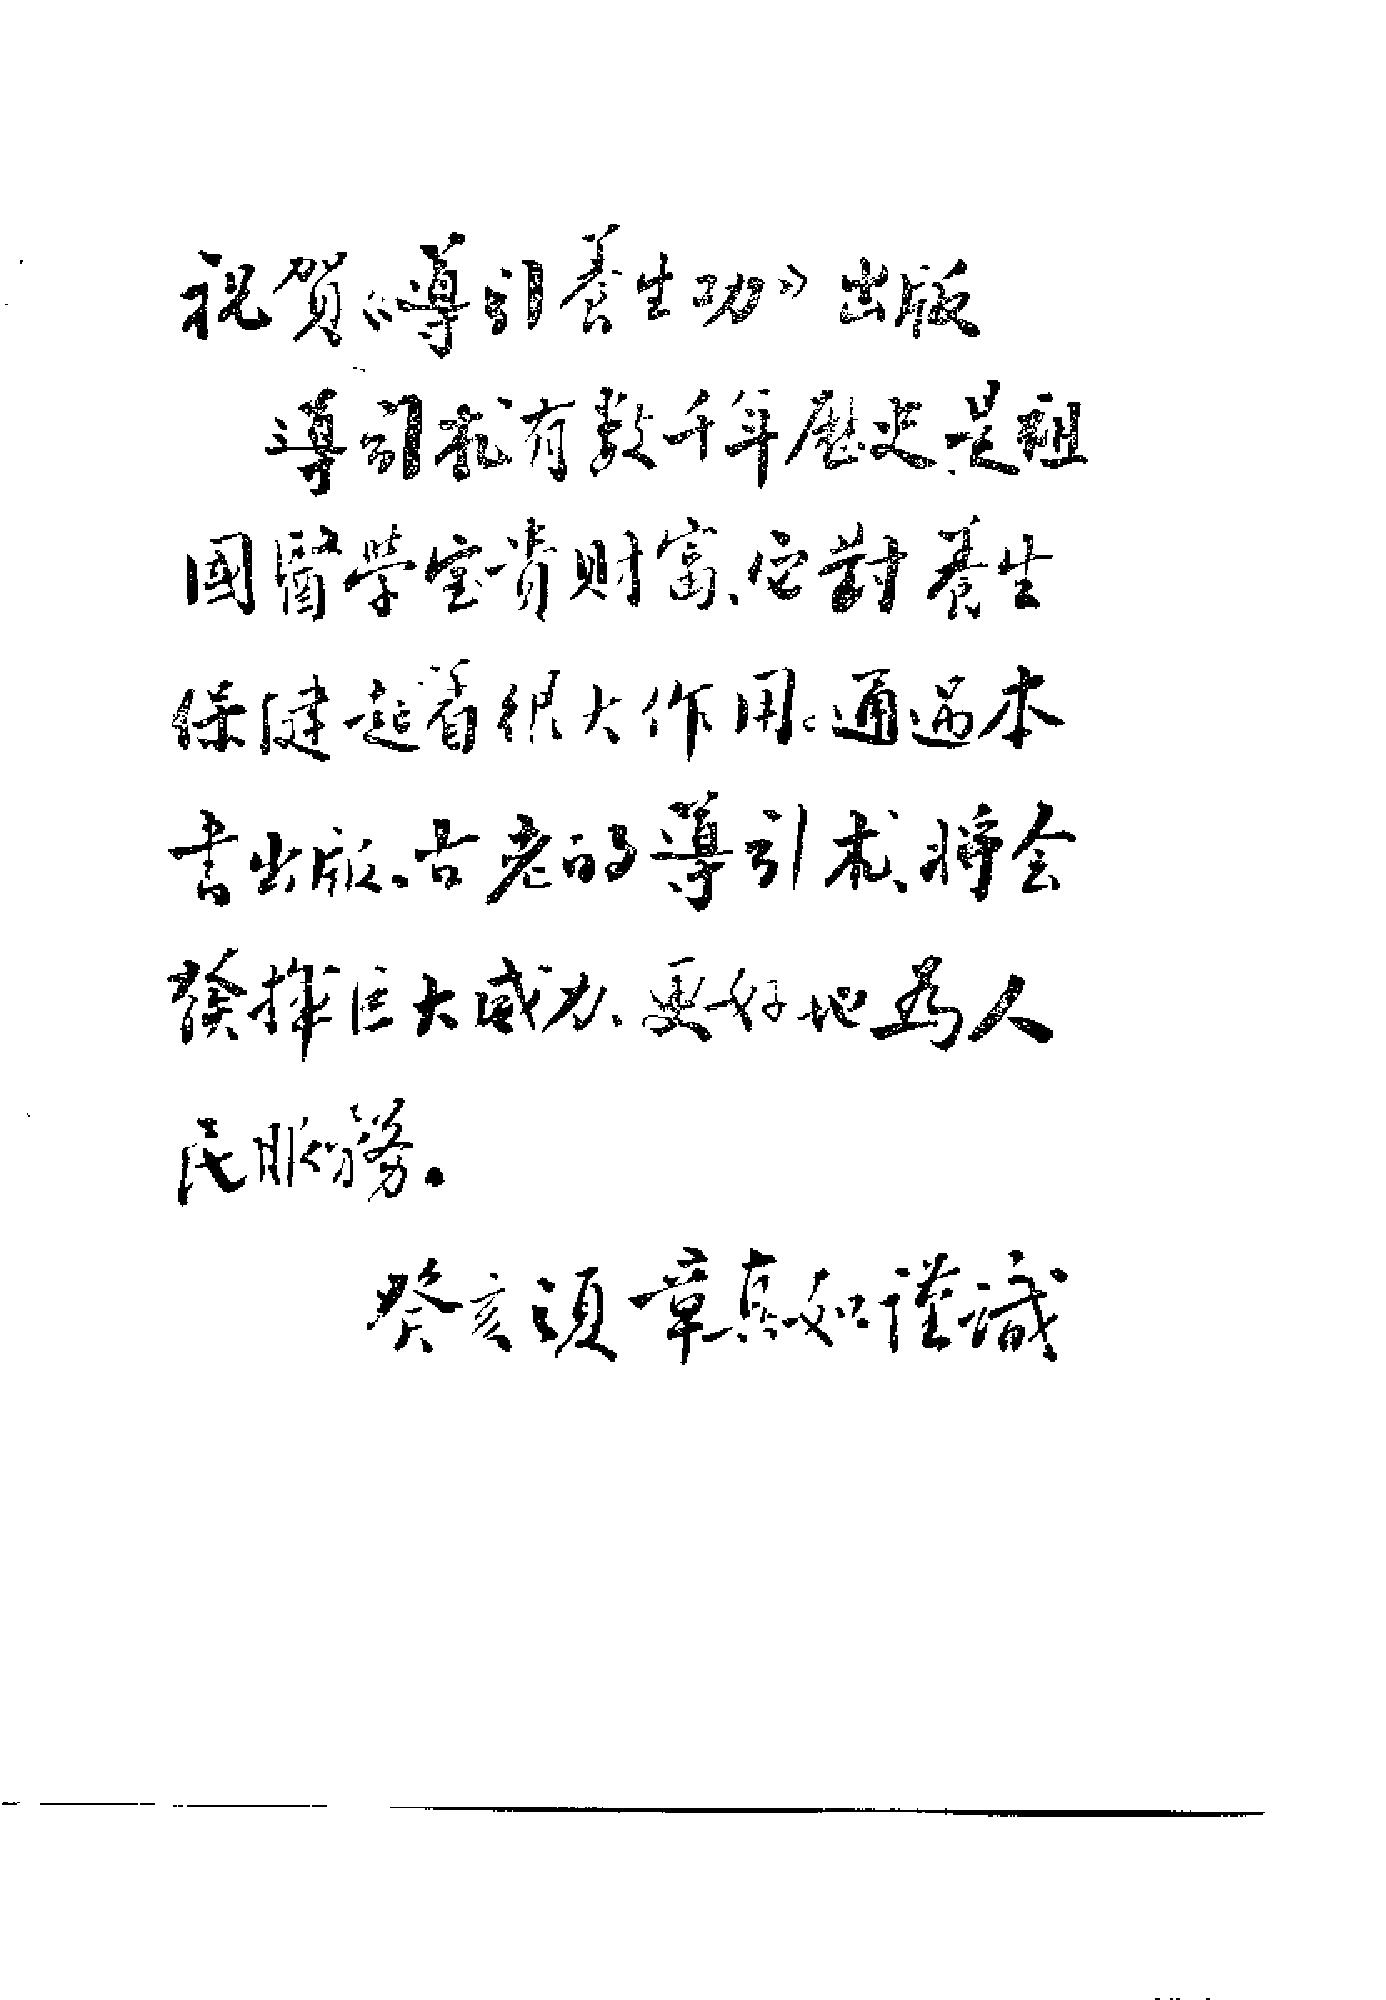 祝賀《導引養生功》出版
導引术有数千年歷史是祖
國醫學宝贵財富、它對養生
保健起着很大作用。通過本
书出版、古老的導引术、將会
發揮巨大威力、更好地为人
民服務。
癸亥夏章真如謹識